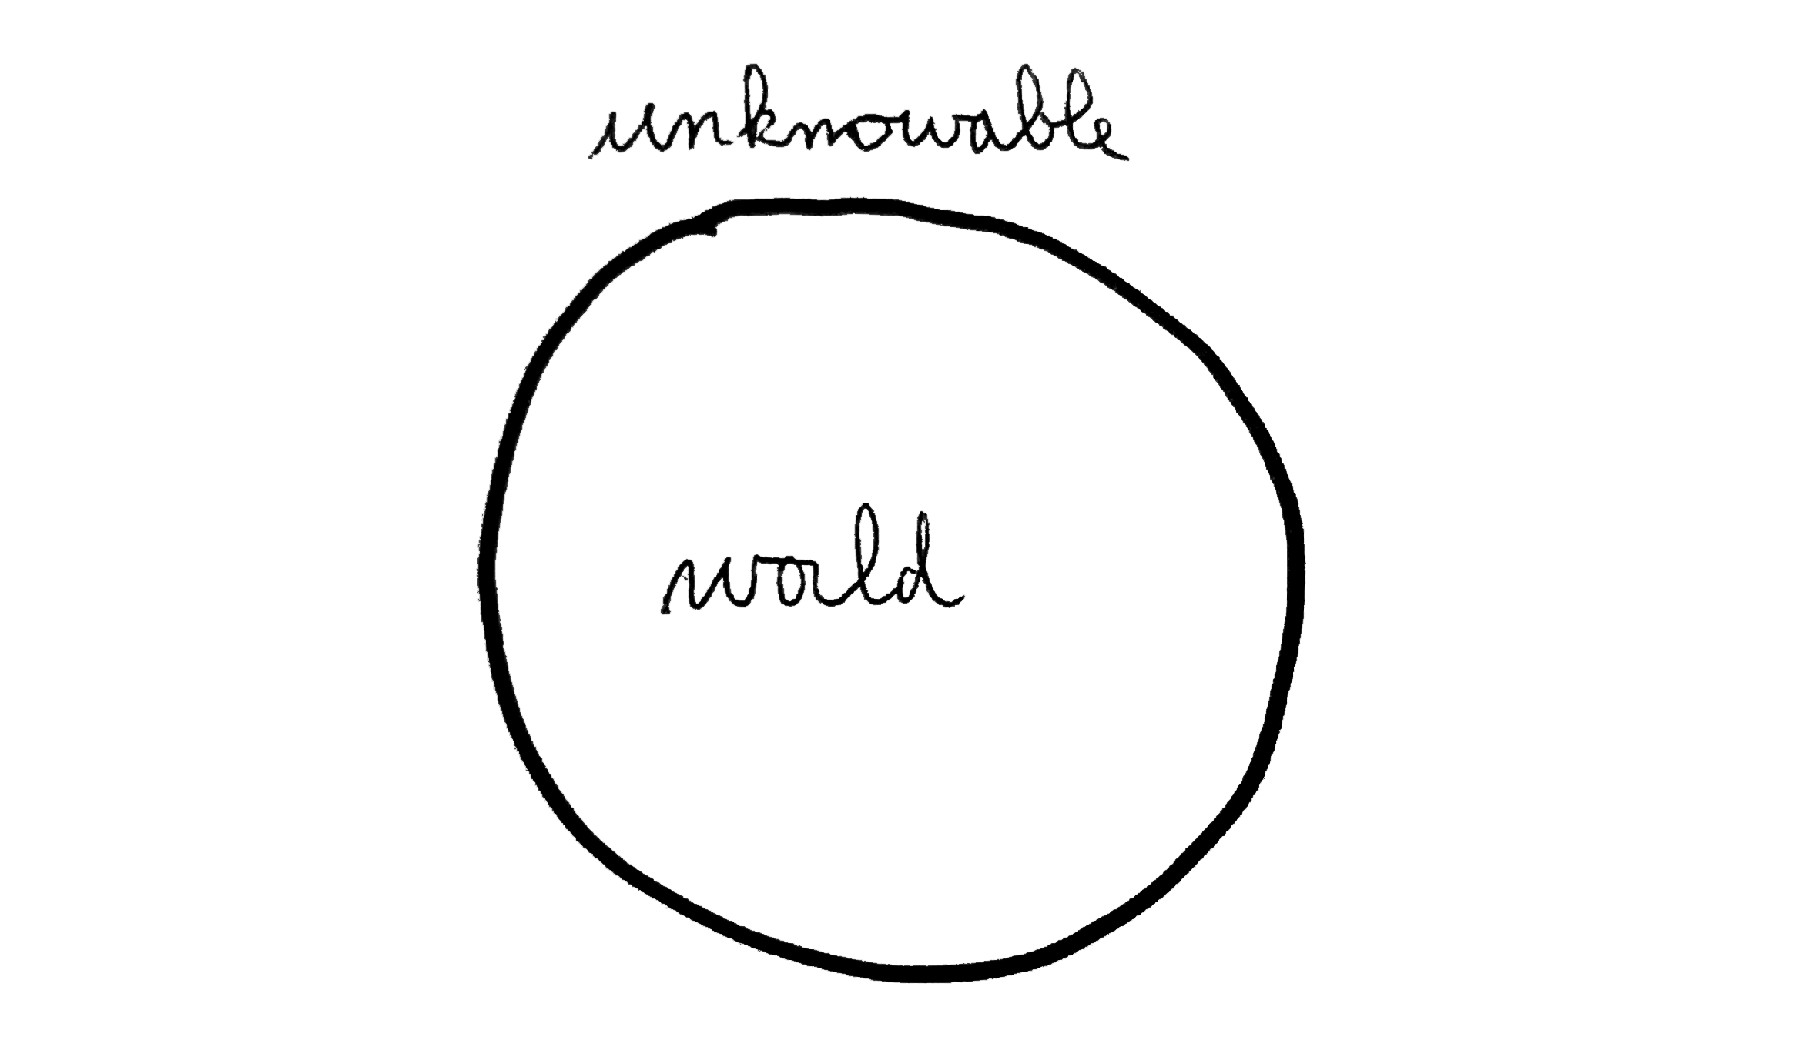 unknowable
world